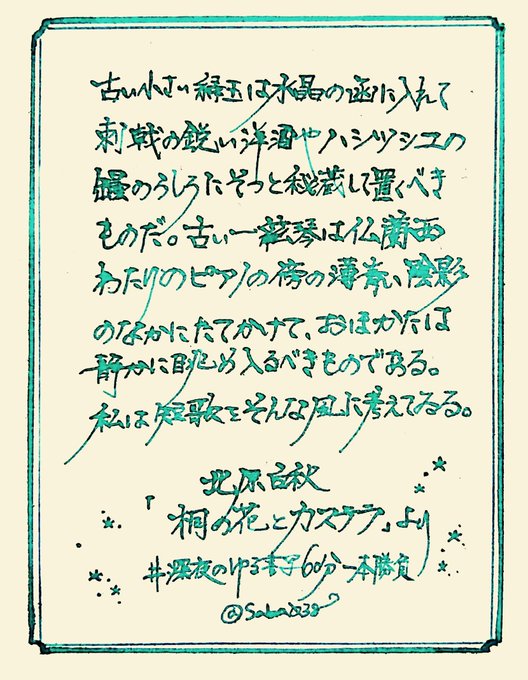 古い小さい緑玉は水晶の函に入れて
刺戟の鋭い洋酒やハシツシユの
罎のうしろにそつと秘蔵して置くべき
ものだ。古い一絃琴は仏蘭西
わたりのピアノの傍の薄青い陰影
のなかにたてかけて、おほかたは
静かに眺め入るべきものである。
私は短歌をそんな風に考えてゐる。
北原白秋
「桐の花とカステラ」より
#深夜のゆる書字60分一本勝負